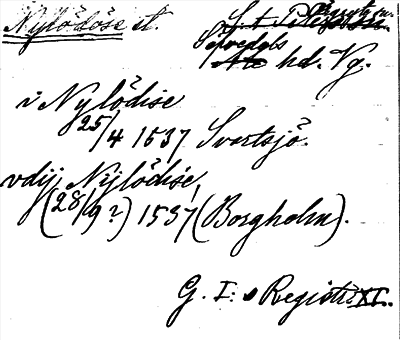 Nylödöse st.
Sävedals
Ale hd. Vg.
i Nylödise
25/4 1537 Svartsjö.
vdij Nylödise,
(28/9?) 1537 (Borgholm).
G. I:s Registr. XI.